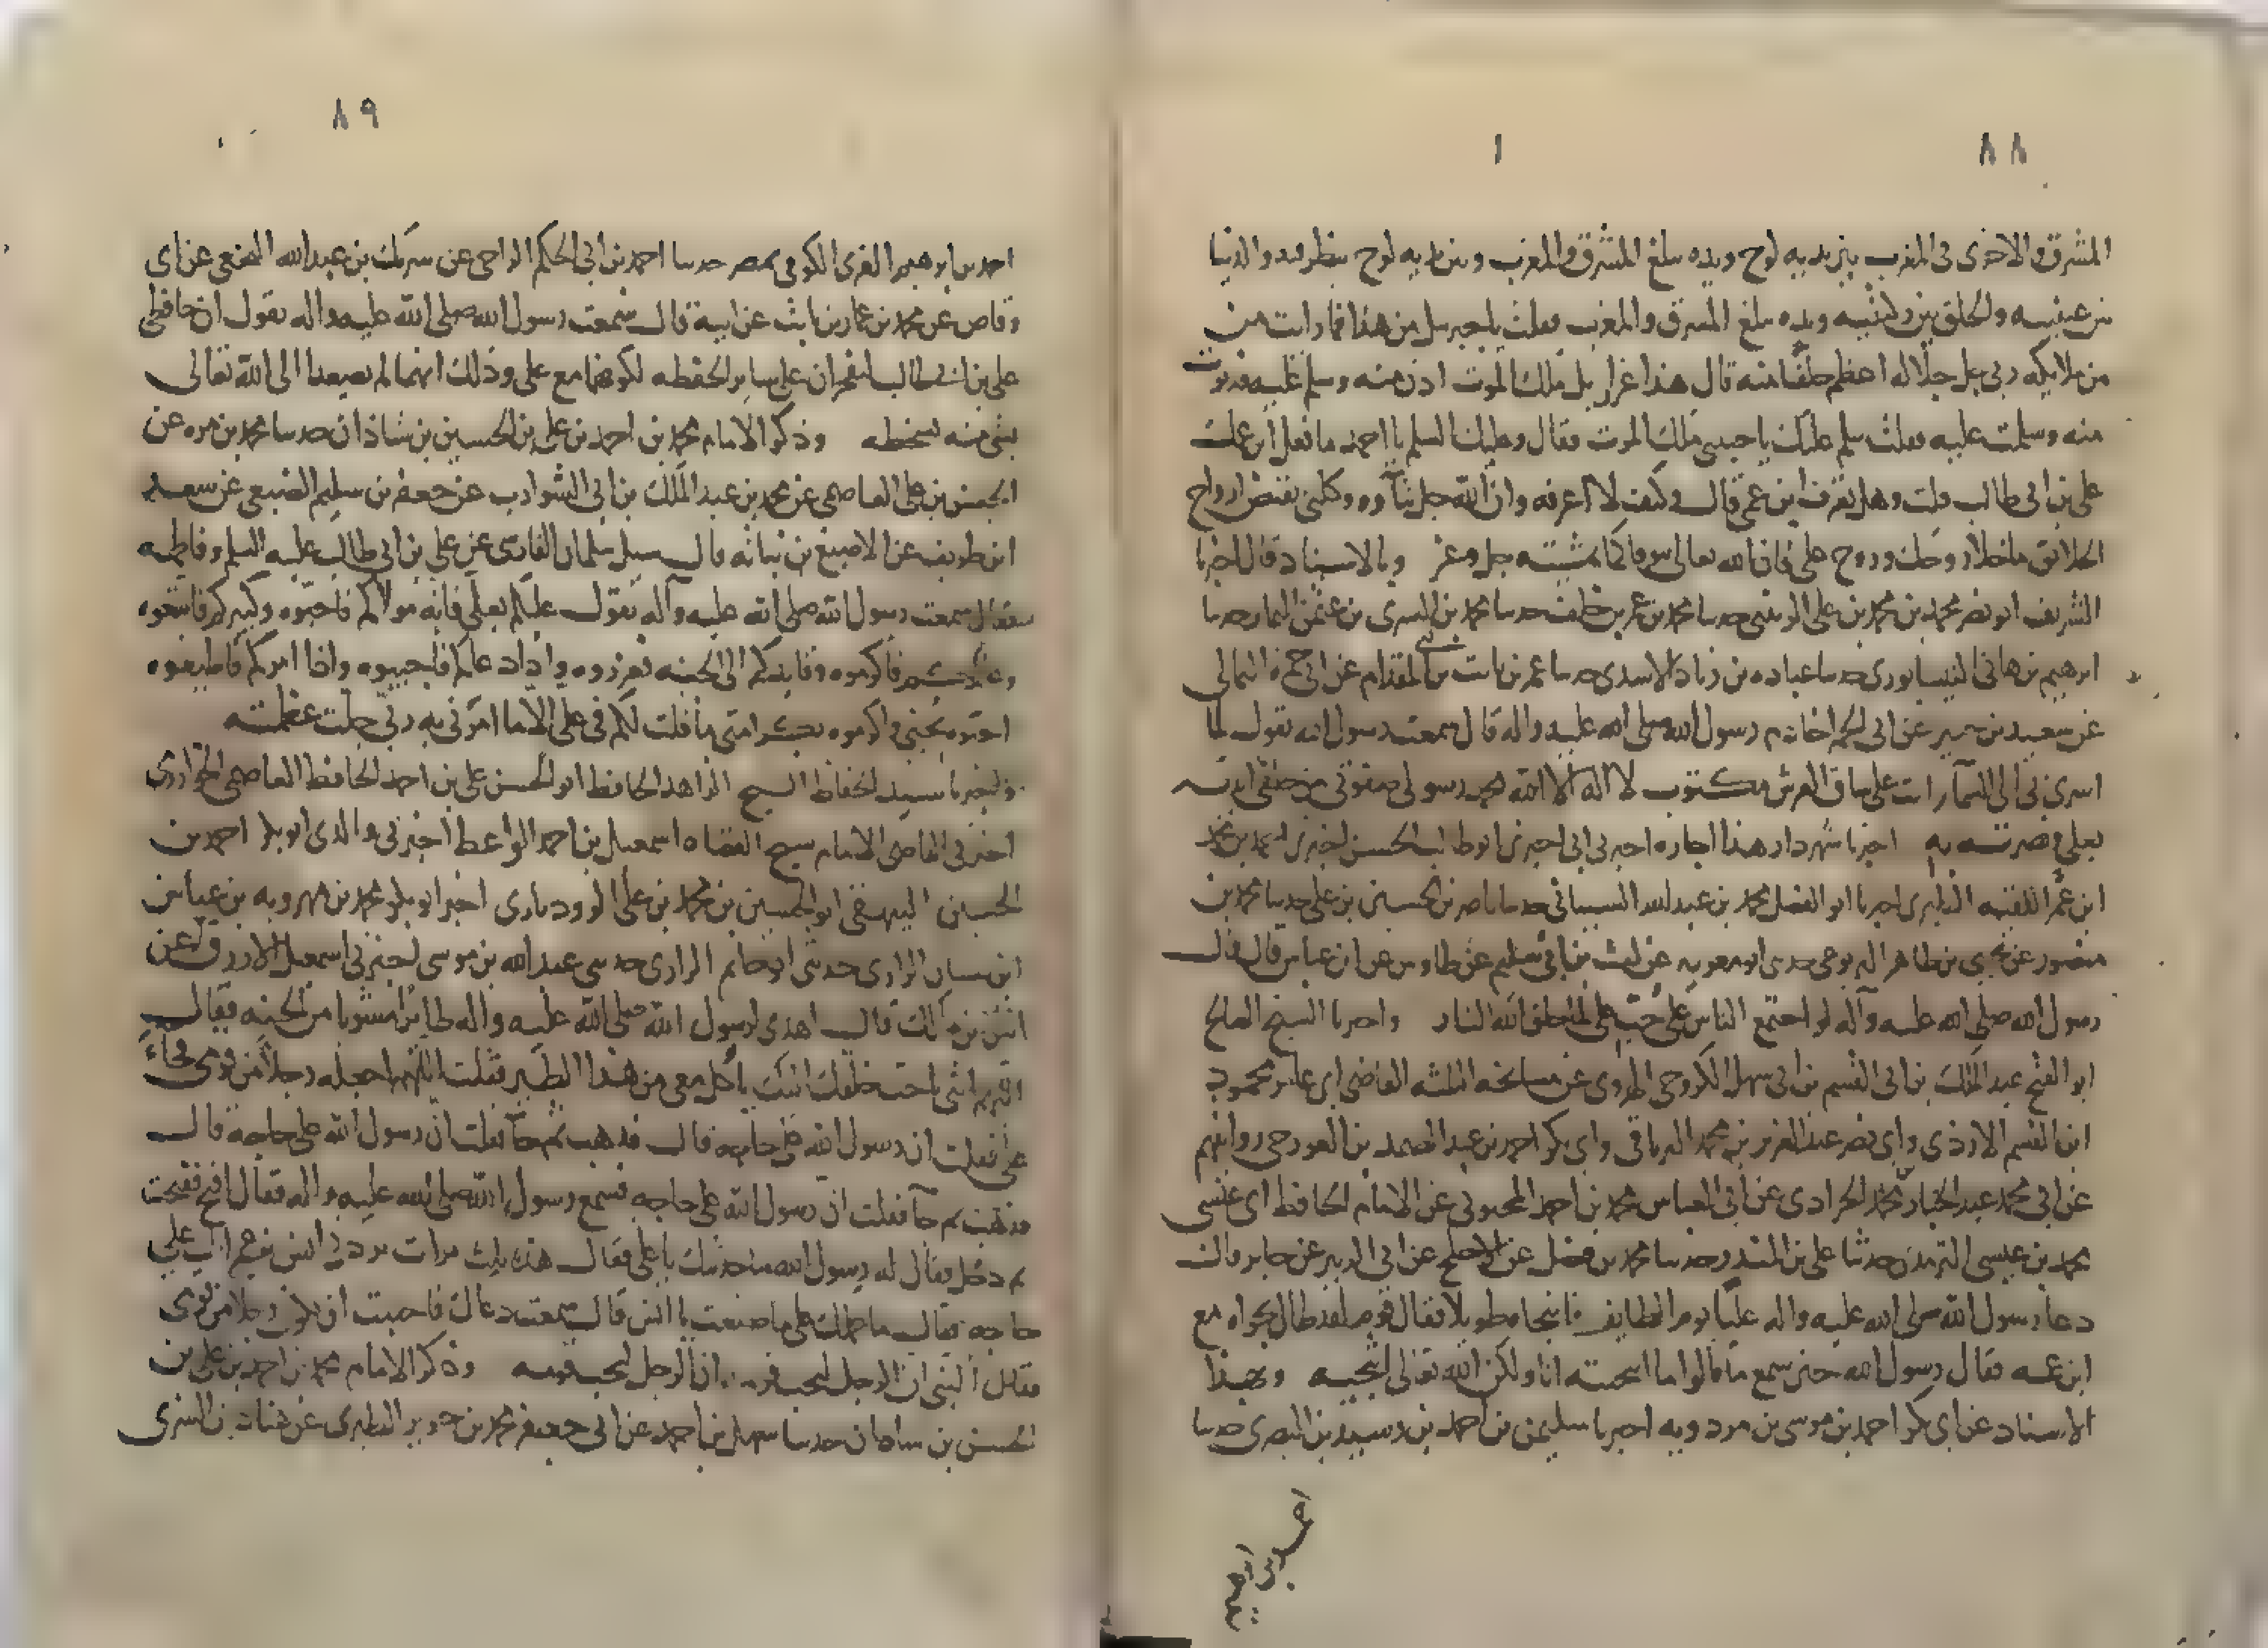 ٨٨
المشرق والاخرى فى المغرب بين يديه لوح ويده تبلغ المشرق والمغرب وبين يديه لوح ينظر فيه والدنيا
بين عينيه والخلق بين ركبتيه ويده تبلغ المشرق والمغرب فقلت يا جبرئيل من هذا فما رايت من
من ملايكه ربى جل جلاله اعظم خلقا منه قال هذا عزرايل ملك الموت ادن منه وسلم عليه فدنوت
منه وسلمت عليه فقلت سلم عليك يا حبيبى ملك الموت فقال وعليك السلم يا احمد ما فعل ابن عمك
على بن ابى طالب قلت وهل تعرف ابن عمى قال وكيف لا اعرفه وان الله جل ثناوه وكلنى بقبض ارواح
الخلائق ما خلا روحك وروح على فان الله تعالى يتوفاكما بمشيته جل وعز وبالاسناد قال اخبرنا
الشريف ابو نصر محمد بن محمد بن على الزينبى حدثنا محمد بن عمر بن خلف حدثنا محمد بن السرى بن عثمن التمار حدثنا
ابرهيم بن هانى النيسابورى حدثنا عباده بن زياد الاسدى حدثنا عمر بن ثابت بن ابى المقدام عن ابى حمزه الثمالى
عن سعيد بن جبير عن ابى الحمرا خادم رسول الله صلى الله عليه واله قال سمعت رسول الله يقول لما
اسرى بى الى السما رايت على ساق العرش مكتوب لا اله الا الله محمد رسولى صفوتى من خلقى ايدته
بعلى ونصرته به اخبرنا شهردار هذا اجازه اخبرنى ابى اخبرنى ابو طالب الحسن اخبرنى احمد بن محمد
ابن عمر الفقيه الطبرى اخبرنا ابو الفضل محمد بن عبد الله الشيبانى حدثنا ناصر بن الحسين بن على حدثنا محمد بن
منصور عن يحيى بن طاهر اليربوعى حدثنى ابو معويه عن ليث بن ابى سليم عن طاوس عن ابن عباس قال قال
رسول الله صلى الله عليه وآله لو اجتمع الناس على حب على لما خلق الله النار واخبرنا الشيخ الصالح
ابو الفتح عبد الملك بن ابى القسم بن ابى سهل الكروخى الهروى عن مشايخه الثلثه القاضى ابى عامر محمود
ابن القسم الازدى وابى نصر عبد العزيز بن محمد الترياقى وابى بكر احمد بن عبد الصمد بن الغورجى روايتهم
عن ابى محمد عبد الجبار بن محمد الجراحى عن ابى العباس محمد بن احمد المحبوبى عن الامام الحافظ ابى عيسى
محمد بن عيسى الترمذى حدثنا على بن المنذر حدثنا محمد بن فضل عن الاجلح عن ابى الزبير عن جابر قال
دعا رسول الله صلى الله عليه واله عليا يوم الطايف فانتجاه طويلا فقال قوم لقد طال نجواه مع
ابن عمه فقال رسول الله حين سمع مقالوا ما انتجيته انا ولكن الله تعالى انتجيه وبهذا
الاسناد عن ابى بكر احمد بن موسى بن مردويه اخبرنا سليمن بن احمد بن رشيد بن المصرى حدثنا
٨٩
احمد بن ابرهيم المغربى الكوفى بمصر حدثنا احمد بن ابى الحكم البراجمى عن شريك بن عبد الله النخعى عن ابى
وقاص عن محمد بن عمار بن ثابت عن ابيه قال سمعت رسول الله صلى الله عليه واله يقول ان حافظى
على بن ابى طالب ليفخران على ساير الحفظه لكونهما مع على وذلك انهما لم يصعدا الى الله تعالى
بشى منه يسخطه وذكر الامام محمد بن احمد بن على بن الحسين بن شاذان حدثنا محمد بن مره عن
الحسن بن على العاصمى عن محمد بن عبد الملك بن ابى الشوارب عن جعفر بن سليم الضبعى عن سعد
ابن طريف عن الاصبغ بن نباته قال سيل سلمان الفارسى عن على بن ابى طالب عليه السلم وفاطمه
فقال سمعت رسول الله صلى الله عليه وآله يقول عليكم بعلى فانه مولاكم فاحبوه وكبيركم فاتبعوه
وعالمكم فاكرموه وقايدكم الى الجنه فعزروه واذا دعاكم فاجيبوه واذا امركم فاطيعوه
احبوه بحبى واكرموه بكرامتى ما قلت لكم فى على الا ما امرنى به ربى جلت عظمته
واخبرنا سيد الحفاظ الشيخ الزاهد الحافظ ابو الحسن على بن احمد الحافظ العاصمى الخوارزمى
اخبرنى القاضى الامام شيخ القضاه اسمعيل بن احمد الواعظ اخبرنى والدى ابو بكر احمد بن
الحسين البيهقى ابو الحسين بن محمد بن على الرودبارى اخبر ابو بكر محمد بن مهرويه بن عباس
ابن سنان الرازى حدثنى ابو حاتم الرازى حدثنى عبد الله بن موسى اخبرنى اسمعيل الازرق عن
انس بن مالك قال اهدى لرسول الله صلى الله عليه واله طايرا مشويا من الجنه فقال اللهم
ائتنى باحب خلقك اليك ياكل معى من هذا الطير فقلت اللهم اجعله رجلا من قومى فجاء
على فقلت ان رسول الله على حاجه قال فذهب ثم جآ فقلت ان رسول الله على حاجه قال
فذهب ثم جآ فقلت ان رسول الله على حاجه فسمع رسول الله صلى الله عليه واله فقال افتح ففتحت
ثم دخل فقال له رسول الله ما حديثك يا على فقال هذه ثلث مرات يردنى انس يزعم انك على
حاجه فقال ما حملك على ما صنعت يا انس قال سمعت دعاك فاحببت ان يكون رجلا من قومى
فقال النبى ان الرجل ليحب قومه ان الرجل ليحب قومه وذكر الامام محمد بن احمد بن على بن
الحسن بن شاذان حدثنا سهل بن احمد عن ابى جعفر محمد بن جرير الطبرى عن هناد بن السرى